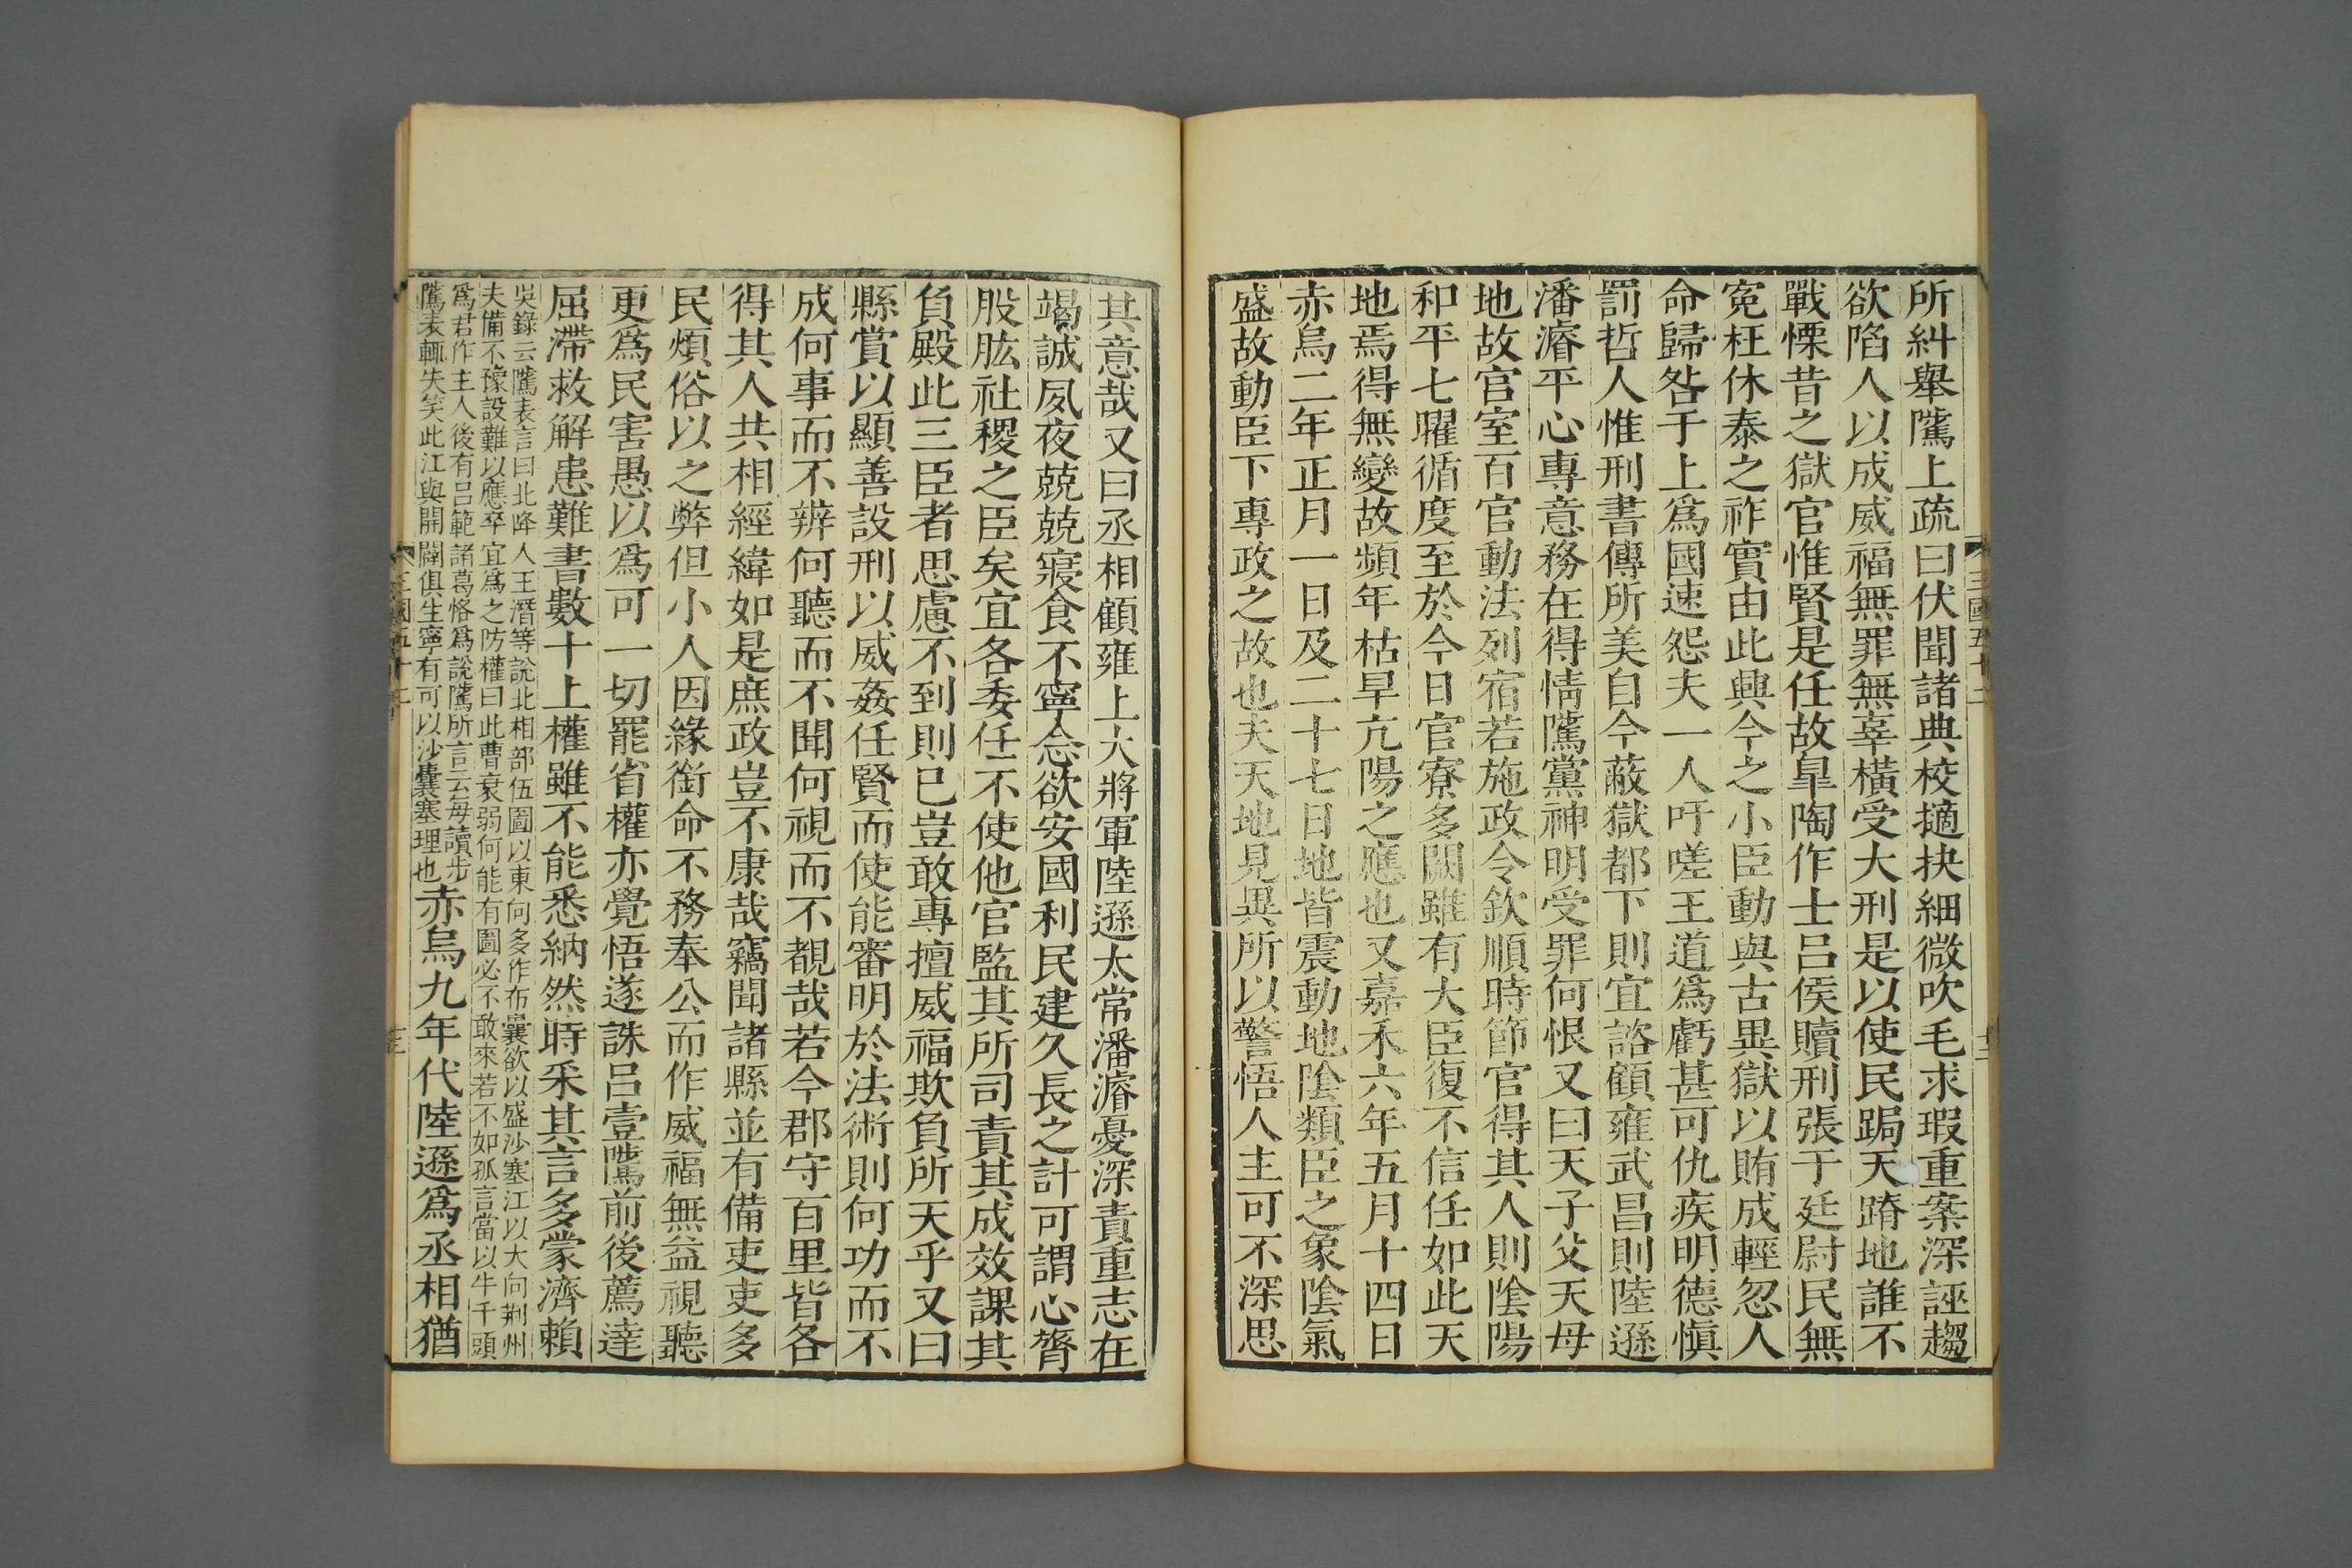 所糾舉隲上疏曰伏聞諸典校擿抉細微吹毛求瑕重案深誣趨
欲陷人以成威福無罪無辜橫受大刑是以使民跼天蹐地誰不
戰慄昔之獄官惟賢是任故臯陶作士呂侯贖刑張于廷尉民無
寃枉休泰之祚實由此興今之小臣動與古異獄以賄成輕忽人
命歸咎于上爲國速怨夫一人吁嗟王道爲虧甚可仇疾明德愼
罰哲人惟刑書傳所美自今蔽獄都下則宜諮顧雍武昌則陸遜
潘濬平心專意務在得情隲黨神明受罪何恨又曰天子父天母
地故宫室百官動法列宿若施政令欽順時節官得其人則陰陽
和平七曜循度至於今日官寮多闕雖有大臣復不信任如此天
地焉得無變故頻年枯旱亢陽之應也又嘉禾六年五月十四日
赤烏二年正月一日及二十七日地皆震動地陰類臣之象陰氣
盛故動臣下專政之故也夫天地見異所以警悟人主可不深思
三國五十二
十二
其意哉又曰丞相顧雍上大將軍陸遜太常潘濬憂深責重志在
竭誠夙夜兢兢寢食不寧念欲安國利民建久長之計可謂心膂
股肱社稷之臣矣宜各委任不使他官監其所司責其成效課其
負殿此三臣者思慮不到則已豈敢專擅威福欺負所天乎又曰
縣賞以顯善設刑以威姦任賢而使能審明於法術則何功而不
成何事而不辨何聽而不聞何視而不覩哉若今郡守百里皆各
得其人共相經緯如是庶政豈不康哉竊聞諸縣並有備吏吏多
民煩俗以之弊但小人因緣銜命不務奉公而作威福無益視聽
更爲民害愚以爲可一切罷省權亦覺悟遂誅呂壹隲前後薦達
屈滯救解患難書數十上權雖不能悉納然時采其言多蒙濟賴
吳錄云隲表言曰北降人王潛等說北相部伍圖以東向多作布囊欲以盛沙塞江以大向荆州
夫備不豫設難以應卒宜爲之防權曰此曹衰弱何能有圖必不敢來若不如孤言當以牛千頭
爲君作主人後有呂範諸葛恪爲說隲所言云每讀步
隲表輒失笑此江與開闢俱生寧有可以沙囊塞理也
赤烏九年代陸遜爲丞相猶
三國五十二
十三